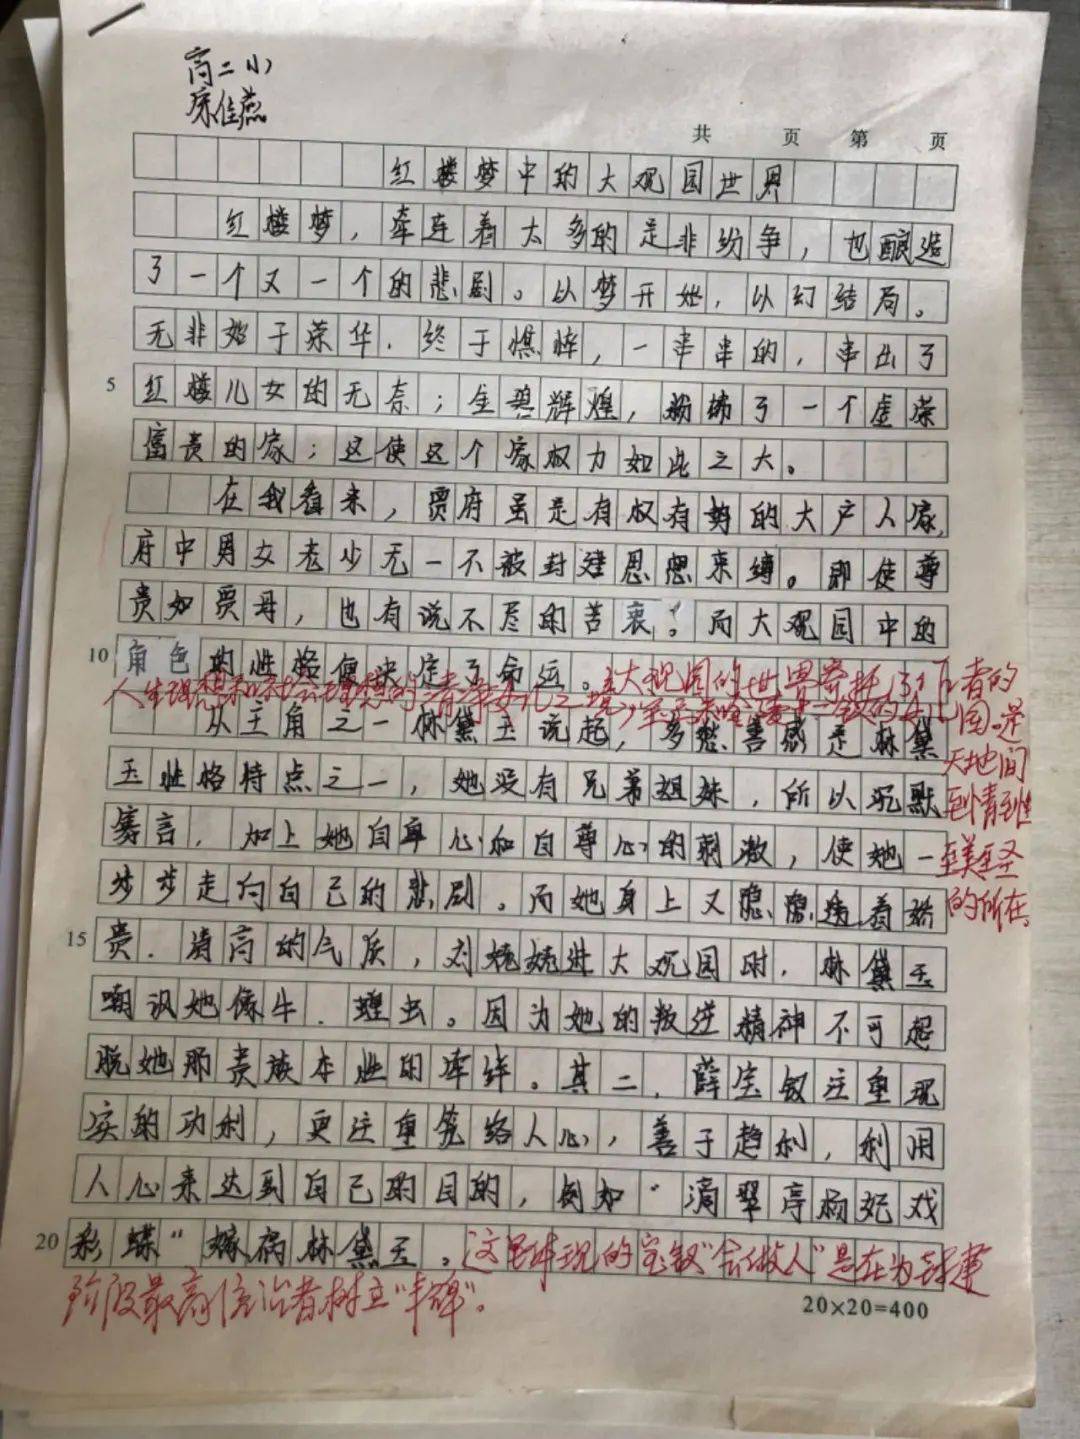 高二小
共 页 第 页
红楼梦中的大观园世界
红楼梦，牵连着太多的是非纷争，也酿造
了一个又一个的悲剧。以梦开始，以幻结局。
无非始于荣华.终于憔悴，一串串的，串出了
5 红楼儿女的无奈；金碧辉煌，粉饰了一个虚荣
富贵的家；这使这个家权力如此之大。
在我看来，贾府虽是有权有势的大户人家，
府中男女老少无一不被封建思想束缚。即使尊
贵如贾母，也有说不尽的苦衷。而大观园中的
10 角色的性格便决定了命运。大观园的世界寄托了 者的
人生理想和 的清净女儿之境， 女儿国.是
从主角之一林黛玉说起，多愁善感是林黛
天地间
玉性格特点之一，她没有兄弟姐妹，所以沉默
至情至性
寡言，加上她自卑心和自尊心的刺激，使她一
至美至圣
步步走向自己的悲剧。而她身上又隐隐透着娇
的所在。
15 贵.清高的气质，刘姥姥进大观园时，林黛玉
嘲讽她像牛.蝗虫。因为她的叛逆精神不可超
脱她那贵族本性的牵绊。其二，薛宝钗注重现
实的功利，更注重笼络人心，善于趋利，利用
人心来达到自己的目的，例如"滴翠亭杨妃戏
20 彩蝶"嫁祸林黛玉。这里体现的宝钗"会做人"是在为封建
阶段最高统治者树立"丰碑"。
20×20=400